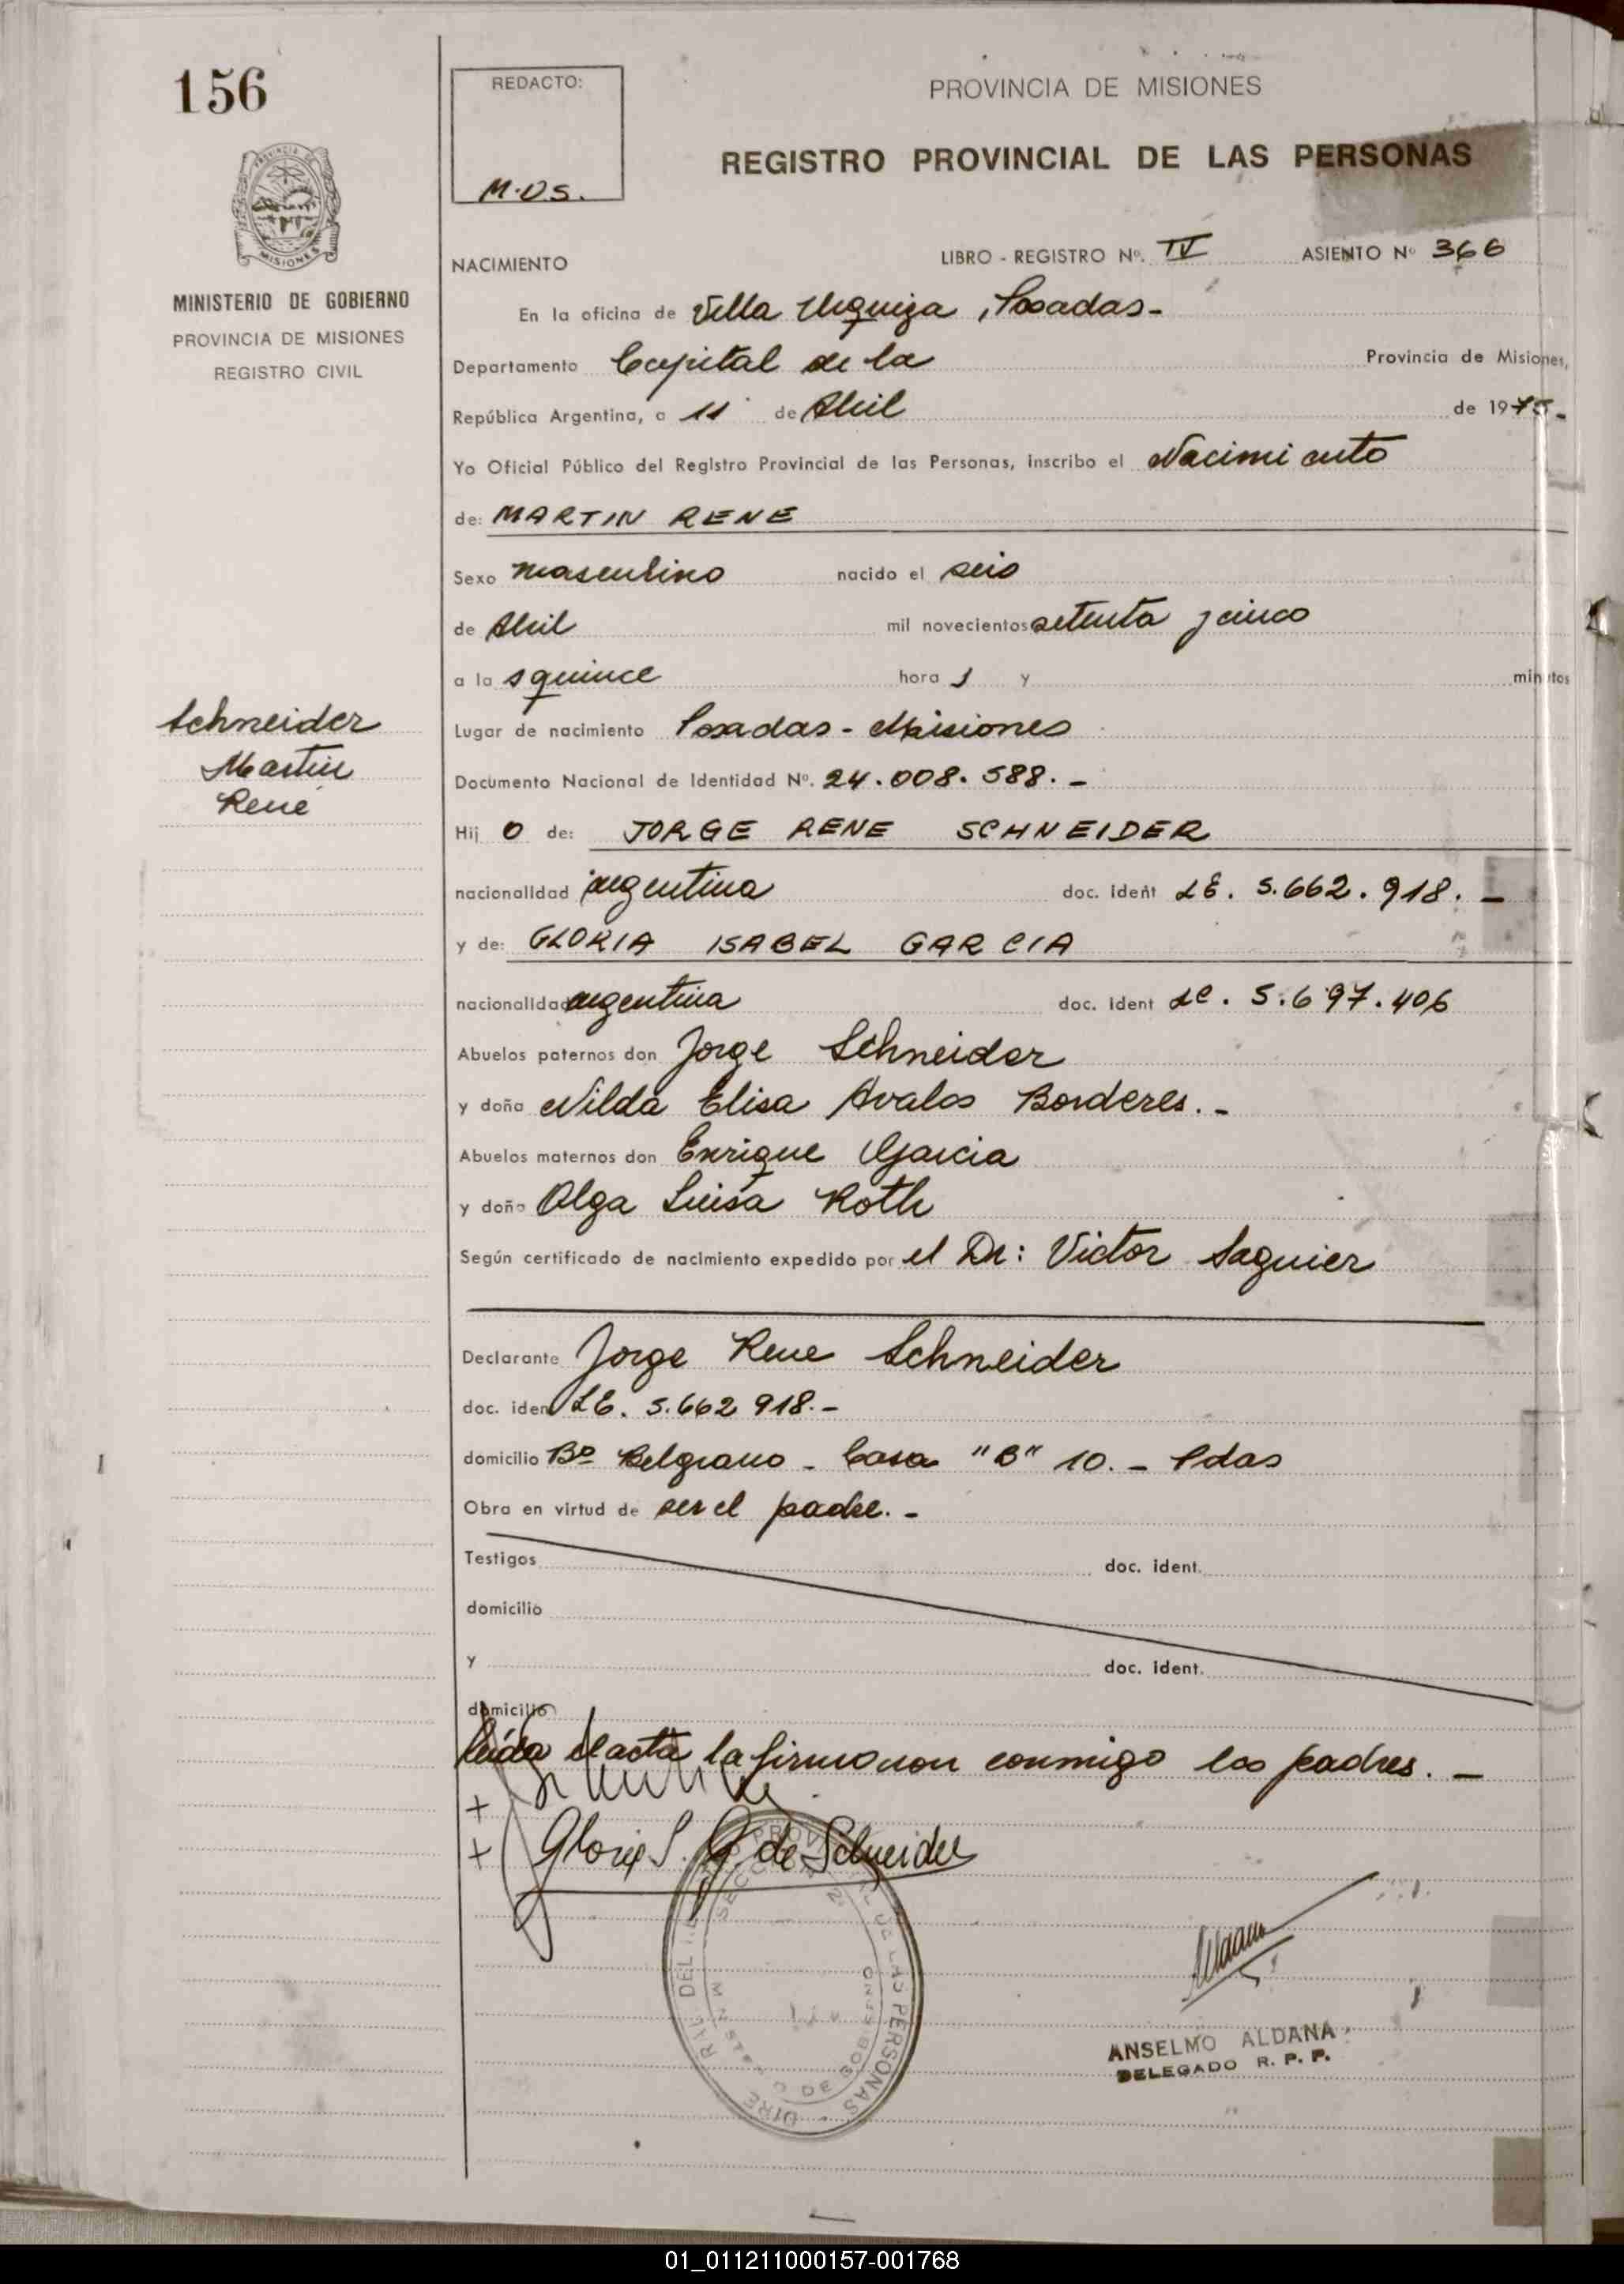 156
REDACTO:
M.O.S.
PROVINCIA DE MISIONES
REGISTRO PROVINCIAL DE LAS PERSONAS
PROVINCIA DE
MISIONES
MINISTERIO DE GOBIERNO
PROVINCIA DE MISIONES
REGISTRO CIVIL
NACIMIENTO
LIBRO - REGISTRO Nº. IV ASIENTO Nº 366
En la oficina de Villa Urquiza, Posadas-
Departamento Capital de la Provincia de Misiones,
República Argentina, a 11 de Abril de 1975-
Yo Oficial Público del Registro Provincial de las Personas, inscribo el Nacimiento
de: MARTIN RENE
Sexo masculino nacido el seis
de Abril mil novecientos setenta y cinco
a la s quince hora s y minutos
Schneider
Martin
René
Lugar de nacimiento Posadas - Misiones
Documento Nacional de Identidad Nº. 24.008.588.-
Hij o de: JORGE RENE SCHNEIDER
nacionalidad argentina doc. ident LE. 5.662.918.-
y de: GLORIA ISABEL GARCIA
nacionalidad argentina doc. ident LC. 5.697.406
Abuelos paternos don Jorge Schneider
y doña Nilda Elisa Avalos Borderes.-
Abuelos maternos don Enrique Garcia
y doña Olga Luisa Roth
Según certificado de nacimiento expedido por el Dr: Victor Saguier
Declarante Jorge Rene Schneider
doc. ident LE. 5.662 918.-
domicilio Bº Belgrano - Casa "B" 10.- Pdas
Obra en virtud de ser el padre.-
Testigos doc. ident.
domicilio
y doc. ident.
domicilio
leída el acta la firmaron conmigo los padres.-
+
+ Gloria I. G. de Schneider
ANSELMO ALDANA
DELEGADO R. P. P.
01_011211000157-001768